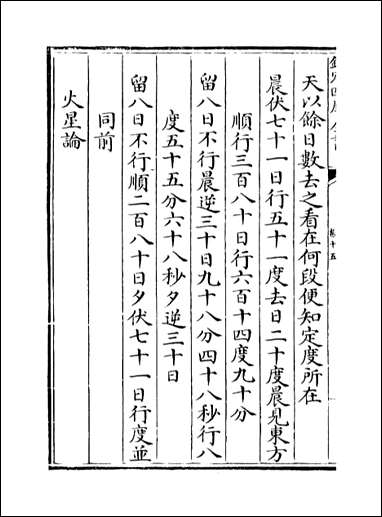 天以餘日數去之看在何段便知定度所在
晨伏七十一日行五十一度去日二十度晨見東方
順行三百八十日行六百十四度九十分
留八日不行晨逆三十日九十八分四十八秒行八
度五十五分六十八秒夕逆三十日
留八日不行順二百八十日夕伏七十一日行度並
同前
火星論